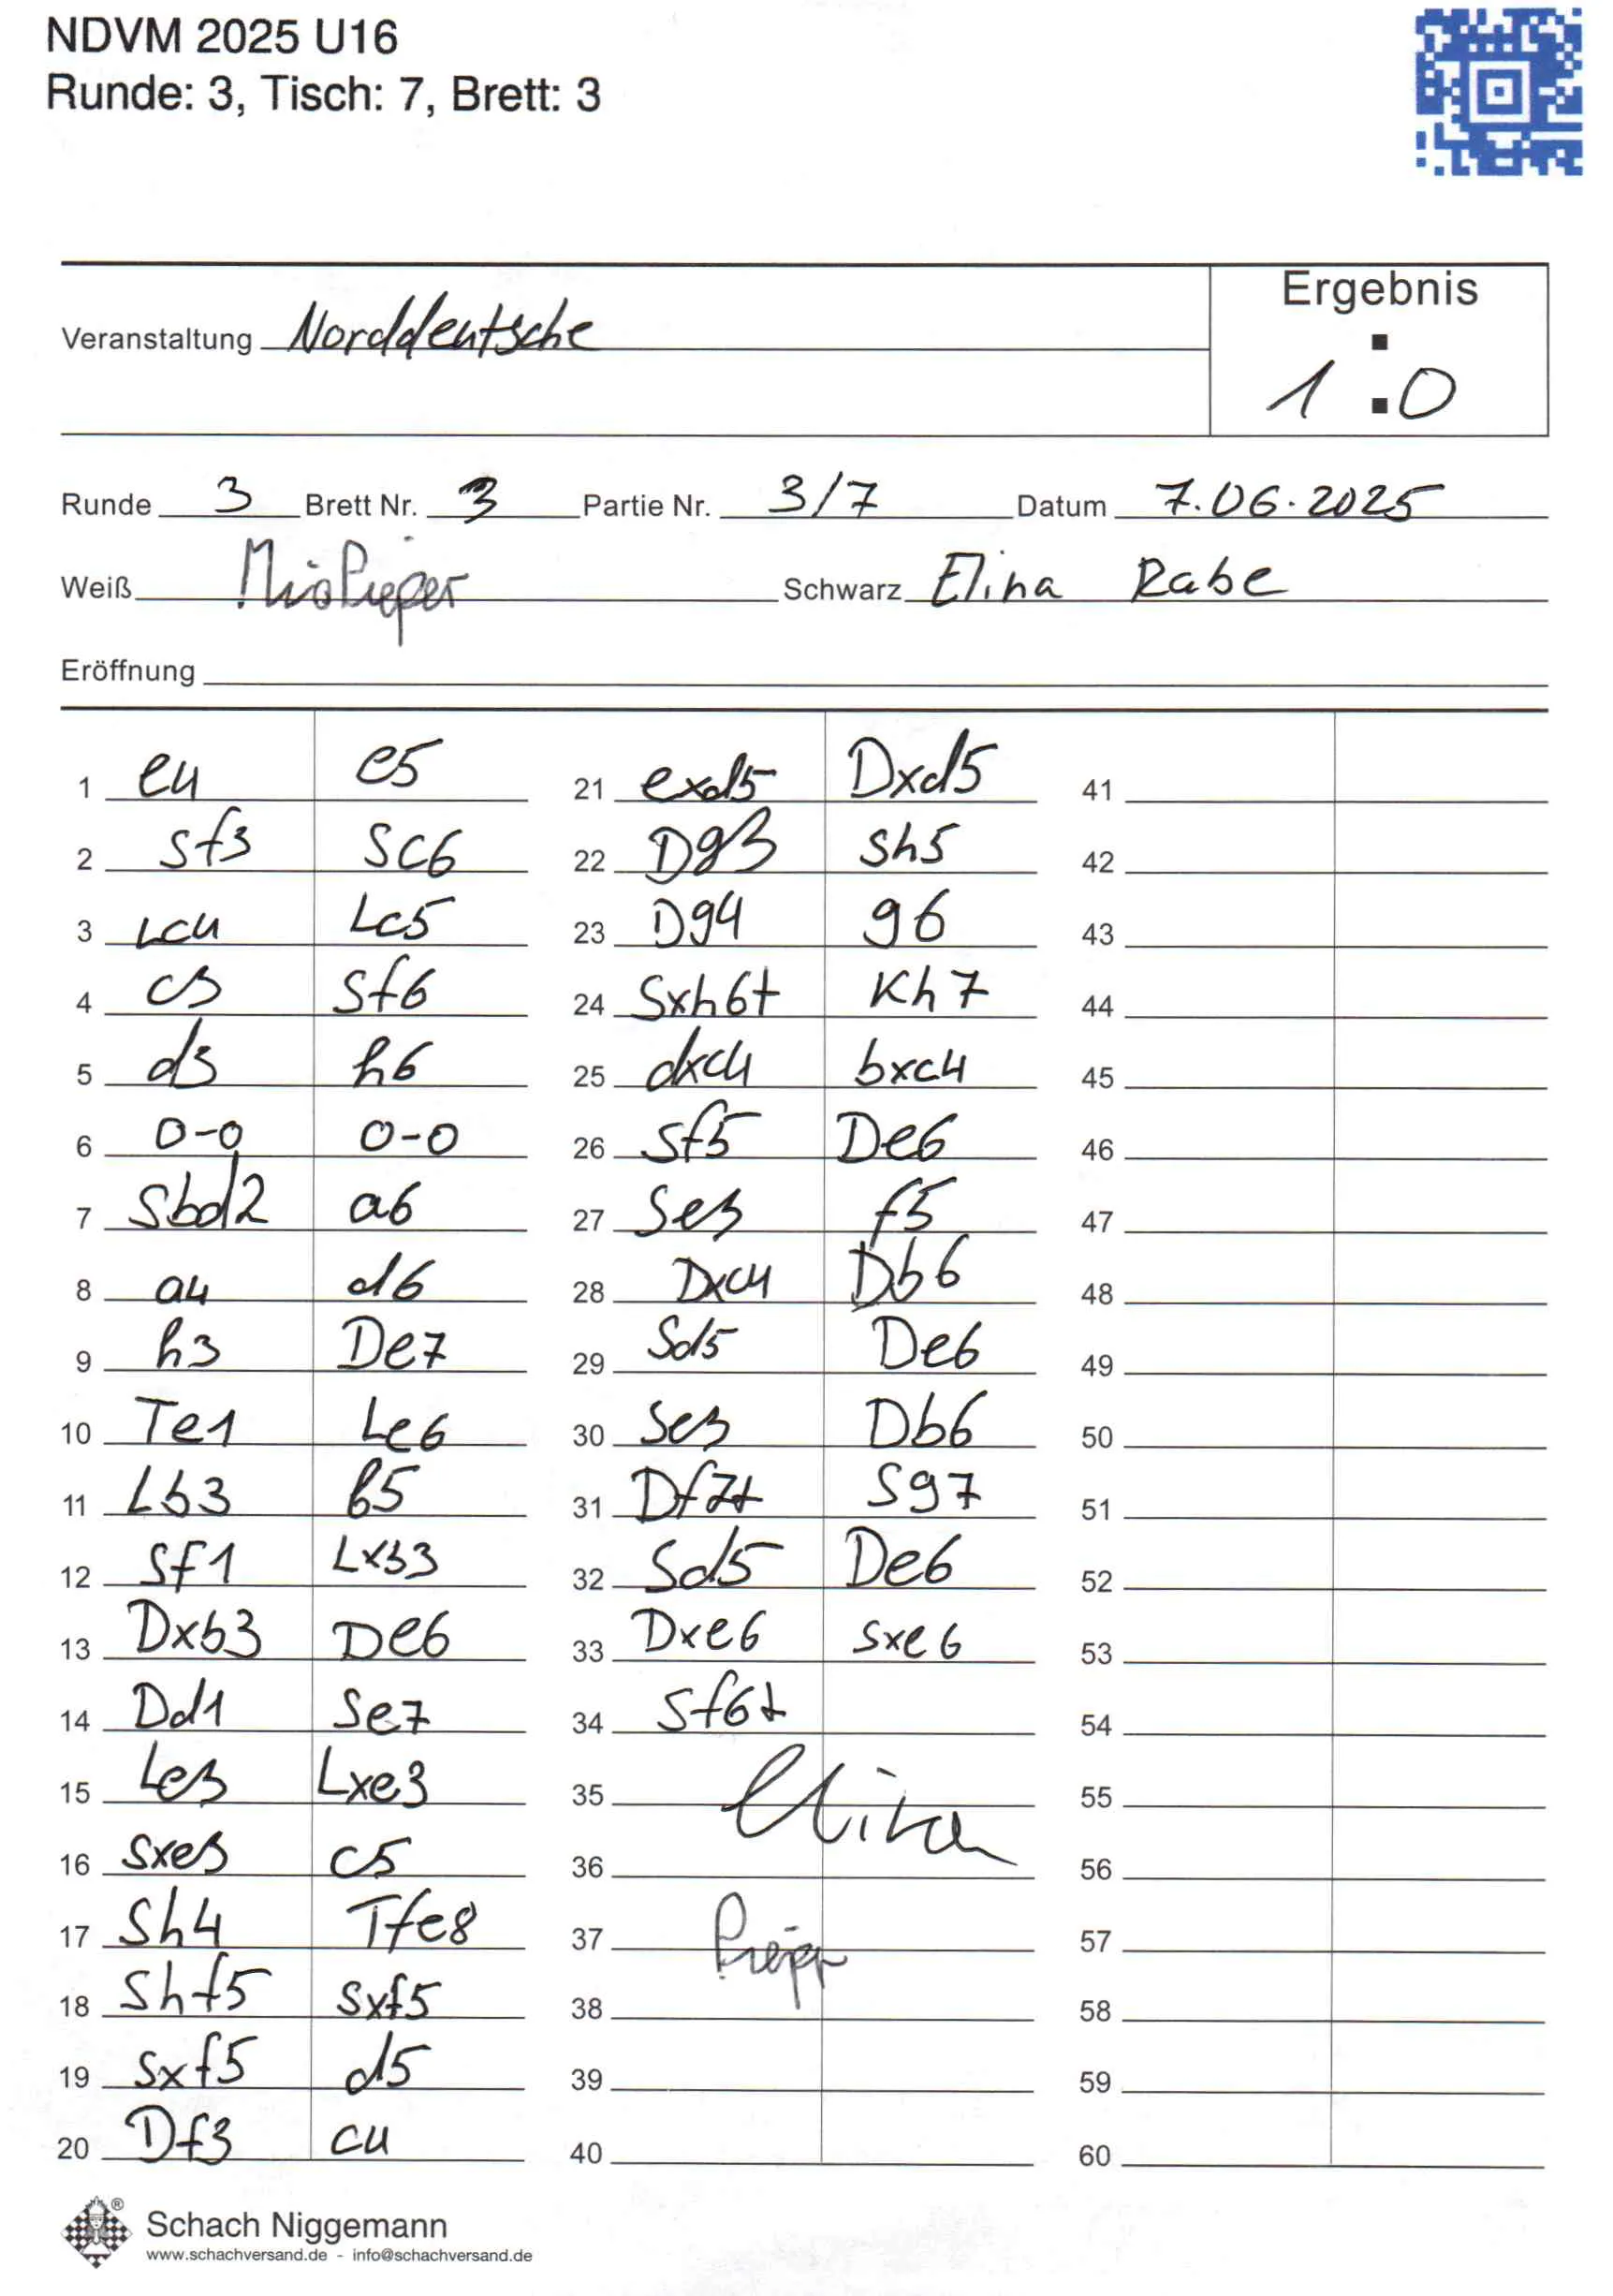 NDVM 2025 U16
Runde: 3, Tisch: 7, Brett: 3
Ergebnis
Veranstaltung Norddeutsche
1 : 0
Runde 3 Brett Nr. 3 Partie Nr. 3/7 Datum 7.06.2025
Weiß Mio Pieper Schwarz Elina Rabe
Eröffnung
1 e4 e5 21 exd5 Dxd5 41
2 Sf3 Sc6 22 Dg3 Sh5 42
3 Lc4 Lc5 23 Dg4 g6 43
4 c3 Sf6 24 Sxh6+ Kh7 44
5 d3 h6 25 dxc4 bxc4 45
6 0-0 0-0 26 Sf5 De6 46
7 Sbd2 a6 27 Se3 f5 47
8 a4 d6 28 Dxc4 Db6 48
9 h3 De7 29 Sd5 De6 49
10 Te1 Le6 30 Se3 Db6 50
11 Lb3 b5 31 Df7+ Sg7 51
12 Sf1 Lxb3 32 Sd5 De6 52
13 Dxb3 De6 33 Dxe6 Sxe6 53
14 Dd1 Se7 34 Sf6+ 54
15 Le3 Lxe3 35 Elina 55
16 Sxe3 c5 36 56
17 Sh4 Tfe8 37 57
18 Shf5 Sxf5 38 58
19 Sxf5 d5 39 59
20 Df3 c4 40 60
® Schach Niggemann
www.schachversand.de - info@schachversand.de